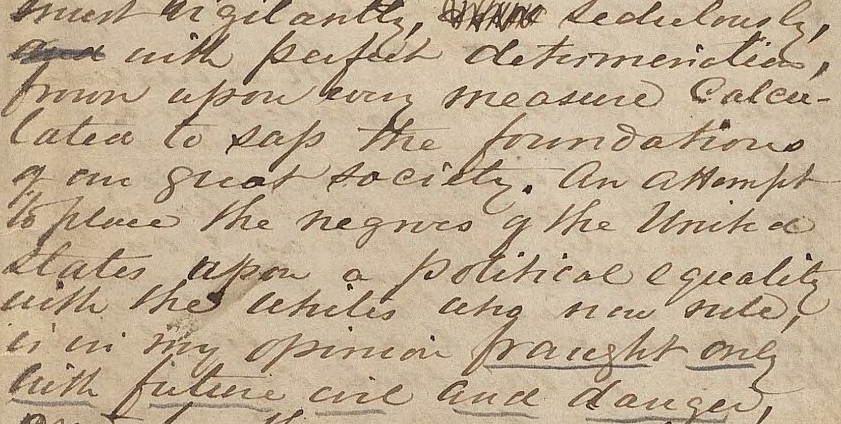 must vigilantly, sedulously,
and with perfect determination,
frown upon every measure Calcu-
lated to sap the foundations
of our great society. An attempt
to place the negroes of the United
States upon a political equality
with the whites who now rule,
is in my opinion fraught only
with future evil and danger,